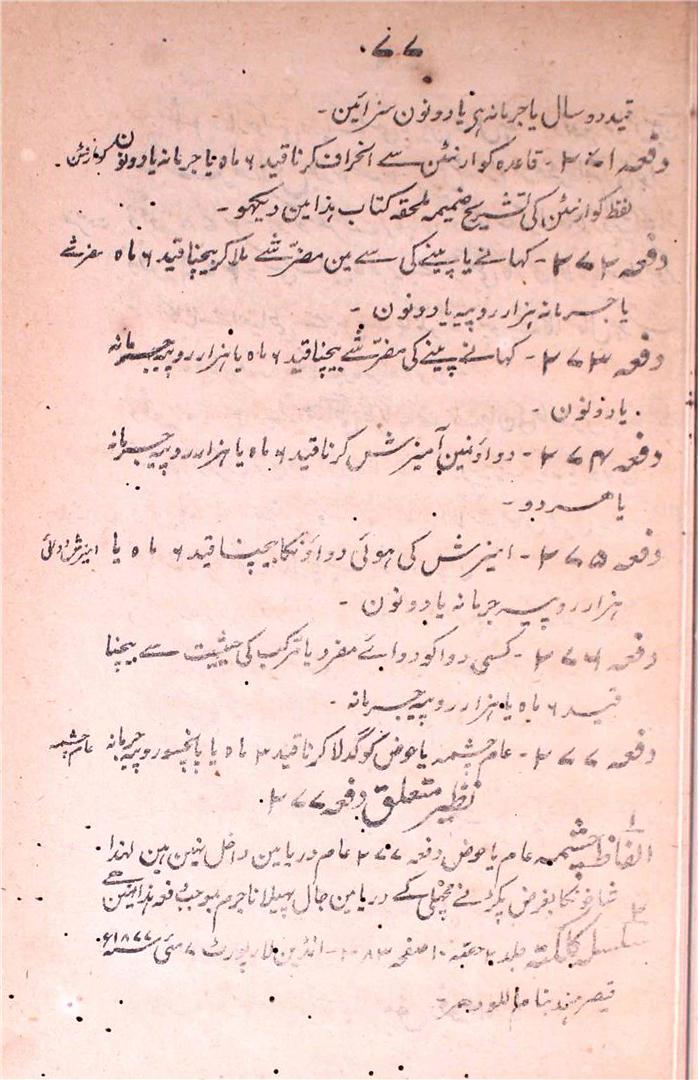 ۷۷
قید دو سال یا جرمانہ یا دونون سزائین -
دفعہ ۲۷۱ - قاعدہ کوارنٹین سے انحراف کرنا قید ۶ ماہ یا جرمانہ یا دونون
لفظ کوارنٹین کی تشریح ضمیمہ ملحقہ کتاب ہذا مین دیکھو -
دفعہ ۲۷۲ - کہانے یا پینے کی شے مین مضر شے ملا کر بیچنا قید ۶ ماہ مضر شے
یا جرمانہ ہزار روپیہ یا دونون -
دفعہ ۲۷۳ - کہانے پینے کی مضر شے بیچنا قید ۶ ماہ یا ہزار روپیہ جرمانہ
یا دونون -
دفعہ ۲۷۴ - دواؤنمین آمیزش کرنا قید ۶ ماہ یا ہزار روپیہ جرمانہ
یا ہر دو -
دفعہ ۲۷۵ - آمیزش کی ہوئی دواؤنکا بیچنا قید ۶ ماہ یا
ہزار روپیہ جرمانہ یا دونون -
دفعہ ۲۷۶ - کسی دوا کو دوائے مفرد یا مرکب کی حیثیت سے بیچنا
قید ۶ ماہ یا ہزار روپیہ جرمانہ -
دفعہ ۲۷۷ - عام چشمہ یا حوض کو گدلا کرنا قید ۳ ماہ یا پانچسو روپیہ جرمانہ عام چشمہ
نظیر متعلق دفعہ ۲۷۷
۱ الفاظ چشمہ عام یا حوض دفعہ ۲۷۷ عام دریا مین داخل نہین ہین لہذا
بغرض پکڑنے مچھلی کے دریا مین جال پھیلانا جرم بموجب دفعہ ہذا نہین ہے
۲ سلسلہ کلکتہ جلد ۲ حصہ ۱۰ صفحہ ۳۸۳ - انڈین لا رپورٹ ۷ مئی سنہ ۱۸۷۷ء
قیصر ہند بنام